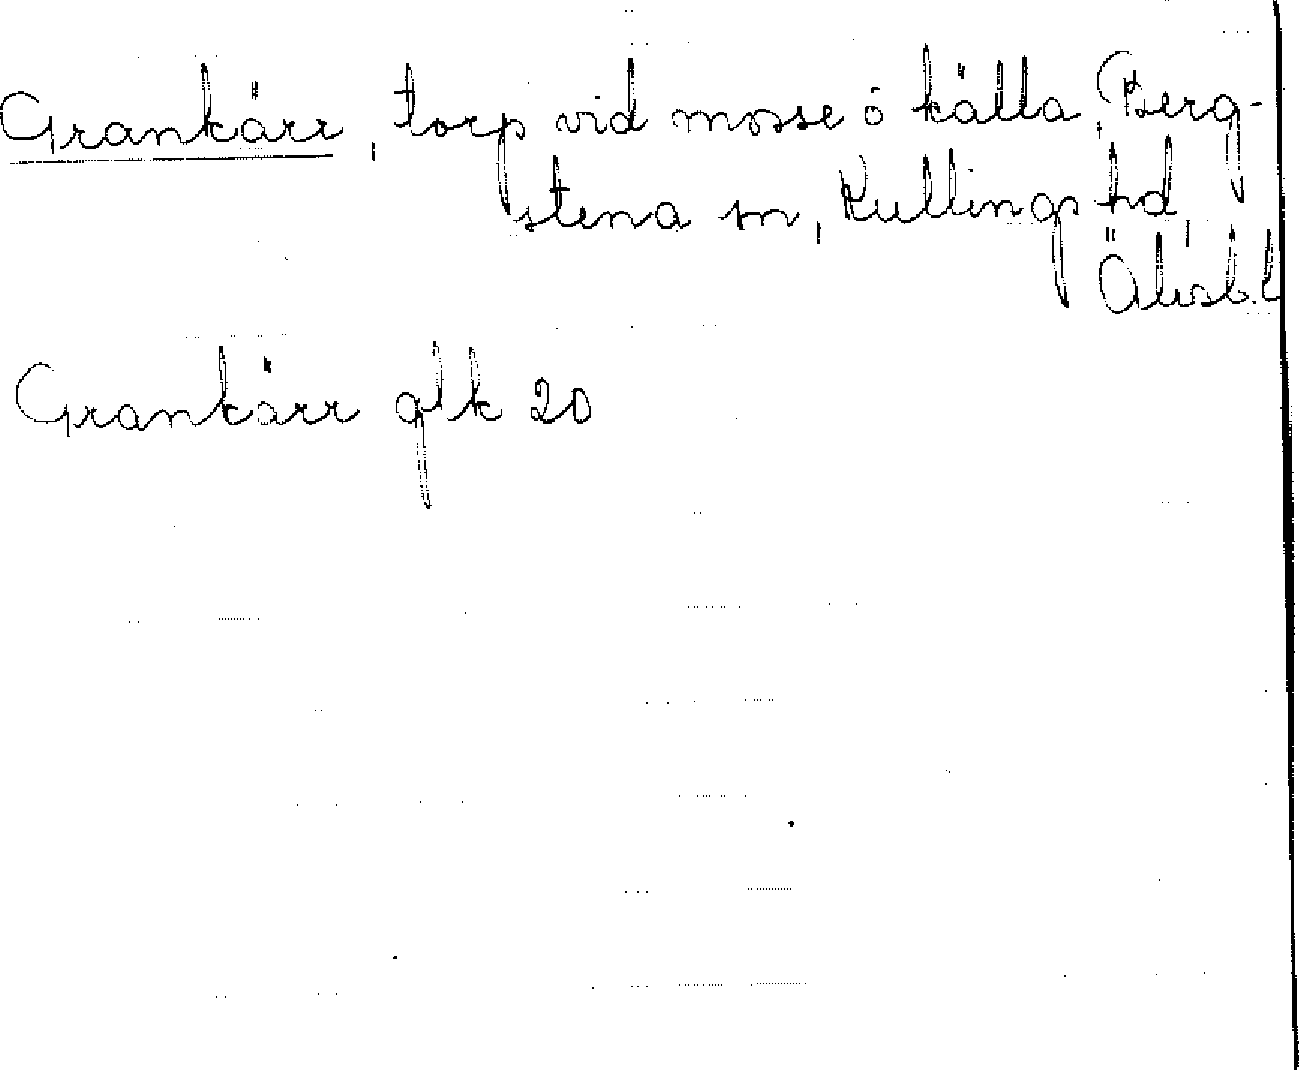 Grankärr, torp vid mosse o källa, Berg-
stena sn, Kullings hd,
Älvsb.l
Grankärr glk 20